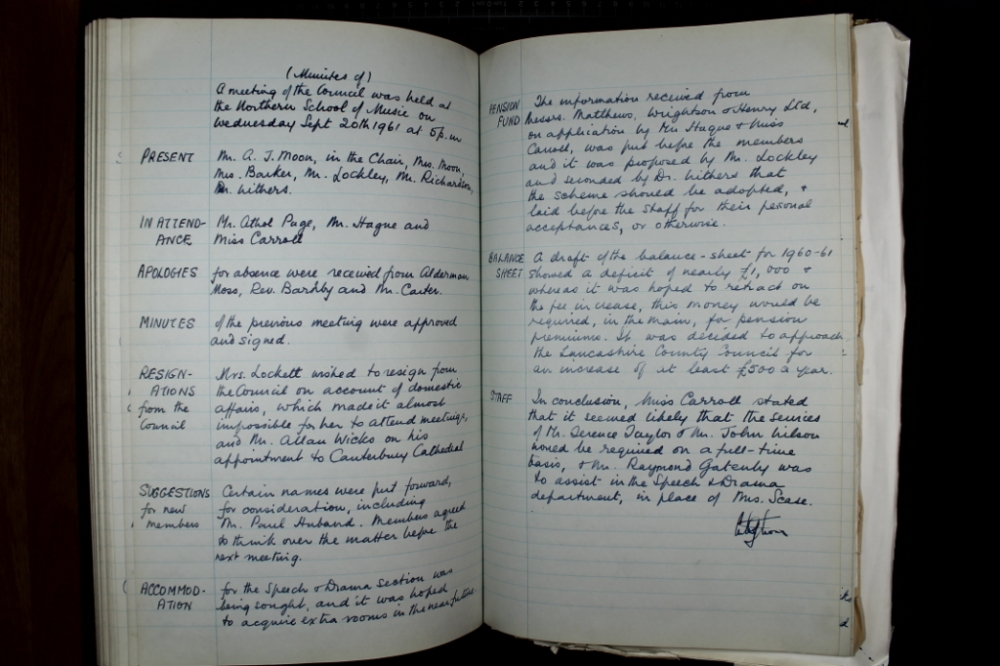 (Minutes of)
A meeting of the Council was held at
the Northern School of Music on
Wednesday Sept 20th 1961 at 5 p.m
PRESENT Mr. A. J. Moon, in the Chair, Mrs. Moon,
Mrs. Barker, Mr. Lockley, Mr. Richardson,
Dr. Withers.
IN ATTEND- Mr. Athol Page, Mr. Hague and
ANCE Miss Carroll
APOLOGIES for absence were received from Alderman
Moss, Rev. Barkby and Mr. Carter.
MINUTES of the previous meeting were approved
and signed.
RESIGN- Mrs. Lockett wished to resign from
ATIONS the Council on account of domestic
from the affairs, which made it almost
Council impossible for her to attend meetings,
and Mr. Allan Wicks on his
appointment to Canterbury Cathedral
SUGGESTIONS Certain names were put forward,
for new for consideration, including
members Mr. Paul Huband. Members agreed
to think over the matter before the
next meeting.
ACCOMMOD- for the Speech & Drama section was
ATION being sought, and it was hoped
to acquire extra rooms in the near future
PENSION The information received from
FUND Messrs. Matthews, Wrightson & Henry Ltd,
on application by Mr Hague & Miss
Carroll, was put before the members
and it was proposed by Mr. Lockley
and seconded by Dr. Withers that
the scheme should be adopted, &
laid before the staff for their personal
acceptances, or otherwise.
BALANCE A draft of the balance-sheet for 1960-61
SHEET showed a deficit of nearly £1,000 &
whereas it was hoped to retract on
the fee increase, this money would be
required, in the main, for pension
premiums. It was decided to approach
the Lancashire County Council for
an increase of at least £500 a year.
STAFF In conclusion, Miss Carroll stated
that it seemed likely that the services
of Mr. Terence Taylor & Mr. John Wilson
would be required on a full-time
basis, & Mr. Raymond Gatenby was
to assist in the Speech & Drama
department, in place of Mrs. Scase.